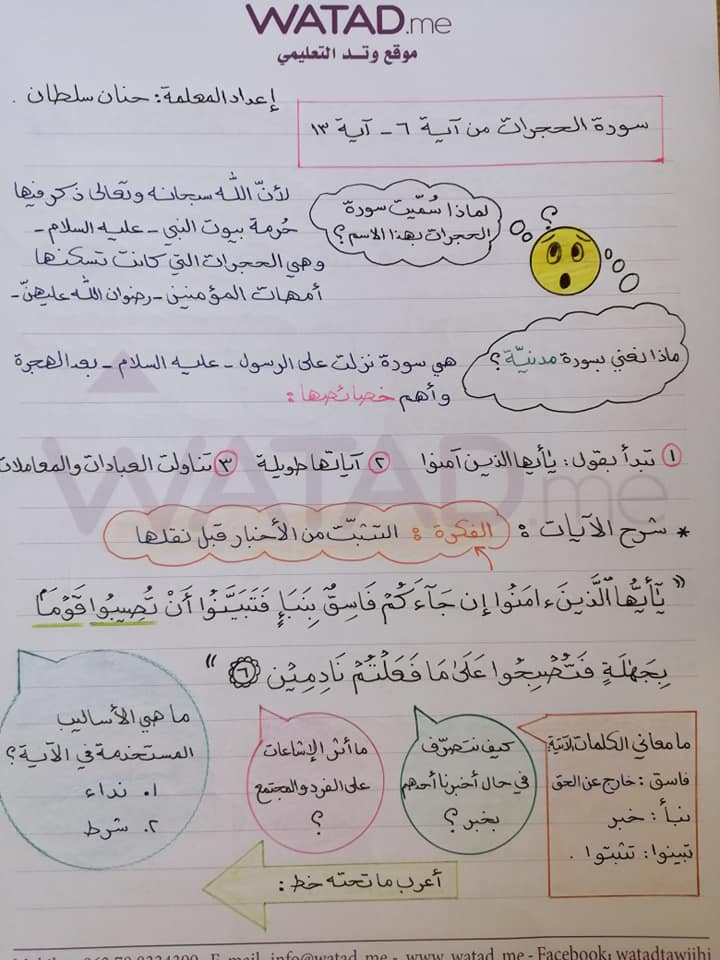 WATAD.me
موقع وتد التعليمي
إعداد المعلمة: حنان سلطان .
سورة الحجرات من آية ٦ - آية ١٣
لماذا سُمّيت سورة
الحجرات بهذا الاسم؟
؟
لأنّ الله سبحانه وتعالى ذكر فيها
حُرمة بيوت النبي - عليه السلام -
وهي الحجرات التي كانت تسكنها
أمهات المؤمنين - رضوان الله عليهنّ -
ماذا نعني بسورة مدنيّة؟
هي سورة نزلت على الرسول - عليه السلام - بعد الهجرة
وأهم خصائصها:
١ تبدأ بقول: يأيها الذين آمنوا ٢ آياتها طويلة ٣ تناولت العبادات والمعاملات
WATAD.me
* شرح الآيات: الفكرة: التثبّت من الأخبار قبل نقلها
" يَٰٓأَيُّهَا ٱلَّذِينَ ءَامَنُوٓا إِن جَآءَكُمۡ فَاسِقُۢ بِنَبَإٖ فَتَبَيَّنُوٓا أَنْ تُصِيبُوا قَوۡمَۢا
بِجَهَٰلَةٖ فَتُصۡبِحُوا عَلَىٰ مَا فَعَلۡتُمۡ نَادِمِيْنَ ٦ "
ما معاني الكلمات الآتية:
فاسق: خارج عن الحق
نبأ: خبر
تبينوا: تثبتوا .
كيف نتصرّف
في حال أخبرنا أحدهم
بخبر؟
ما أثر الإشاعات
على الفرد والمجتمع
؟
ما هي الأساليب
المستخدمة في الآية؟
١. نداء
٢. شرط
أعرب ما تحته خط:
E-mail info@watad.me - www.watad.me - Facebook: watadtawjihi